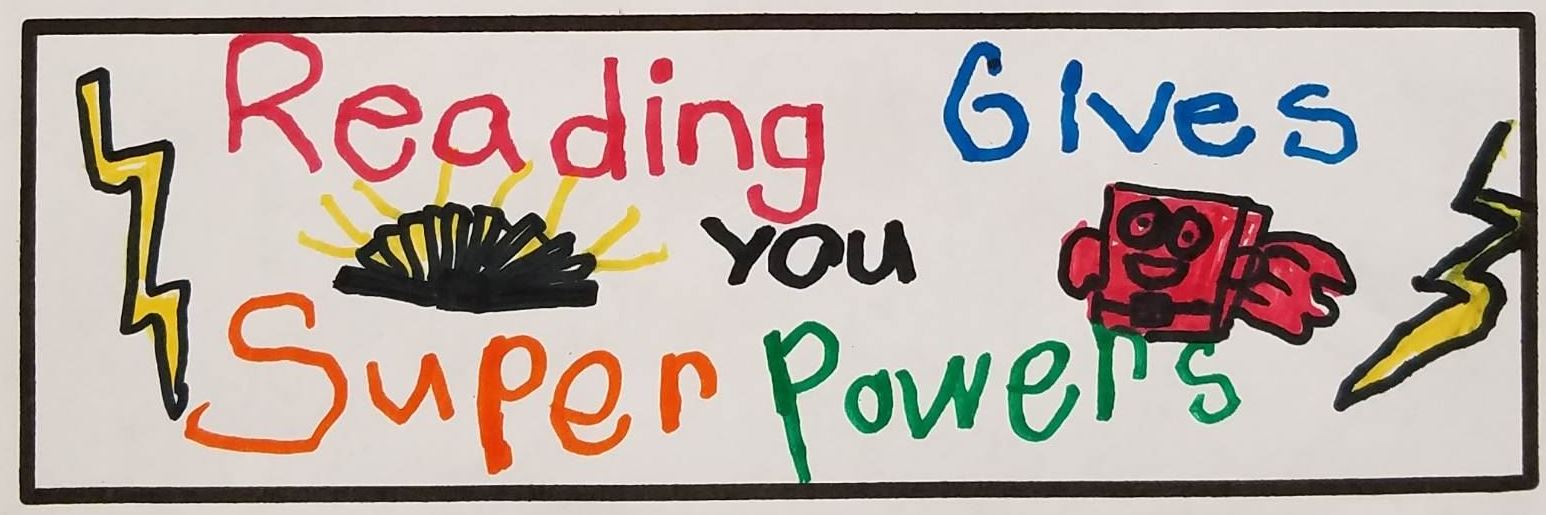 Reading Gives
you
Super Powers